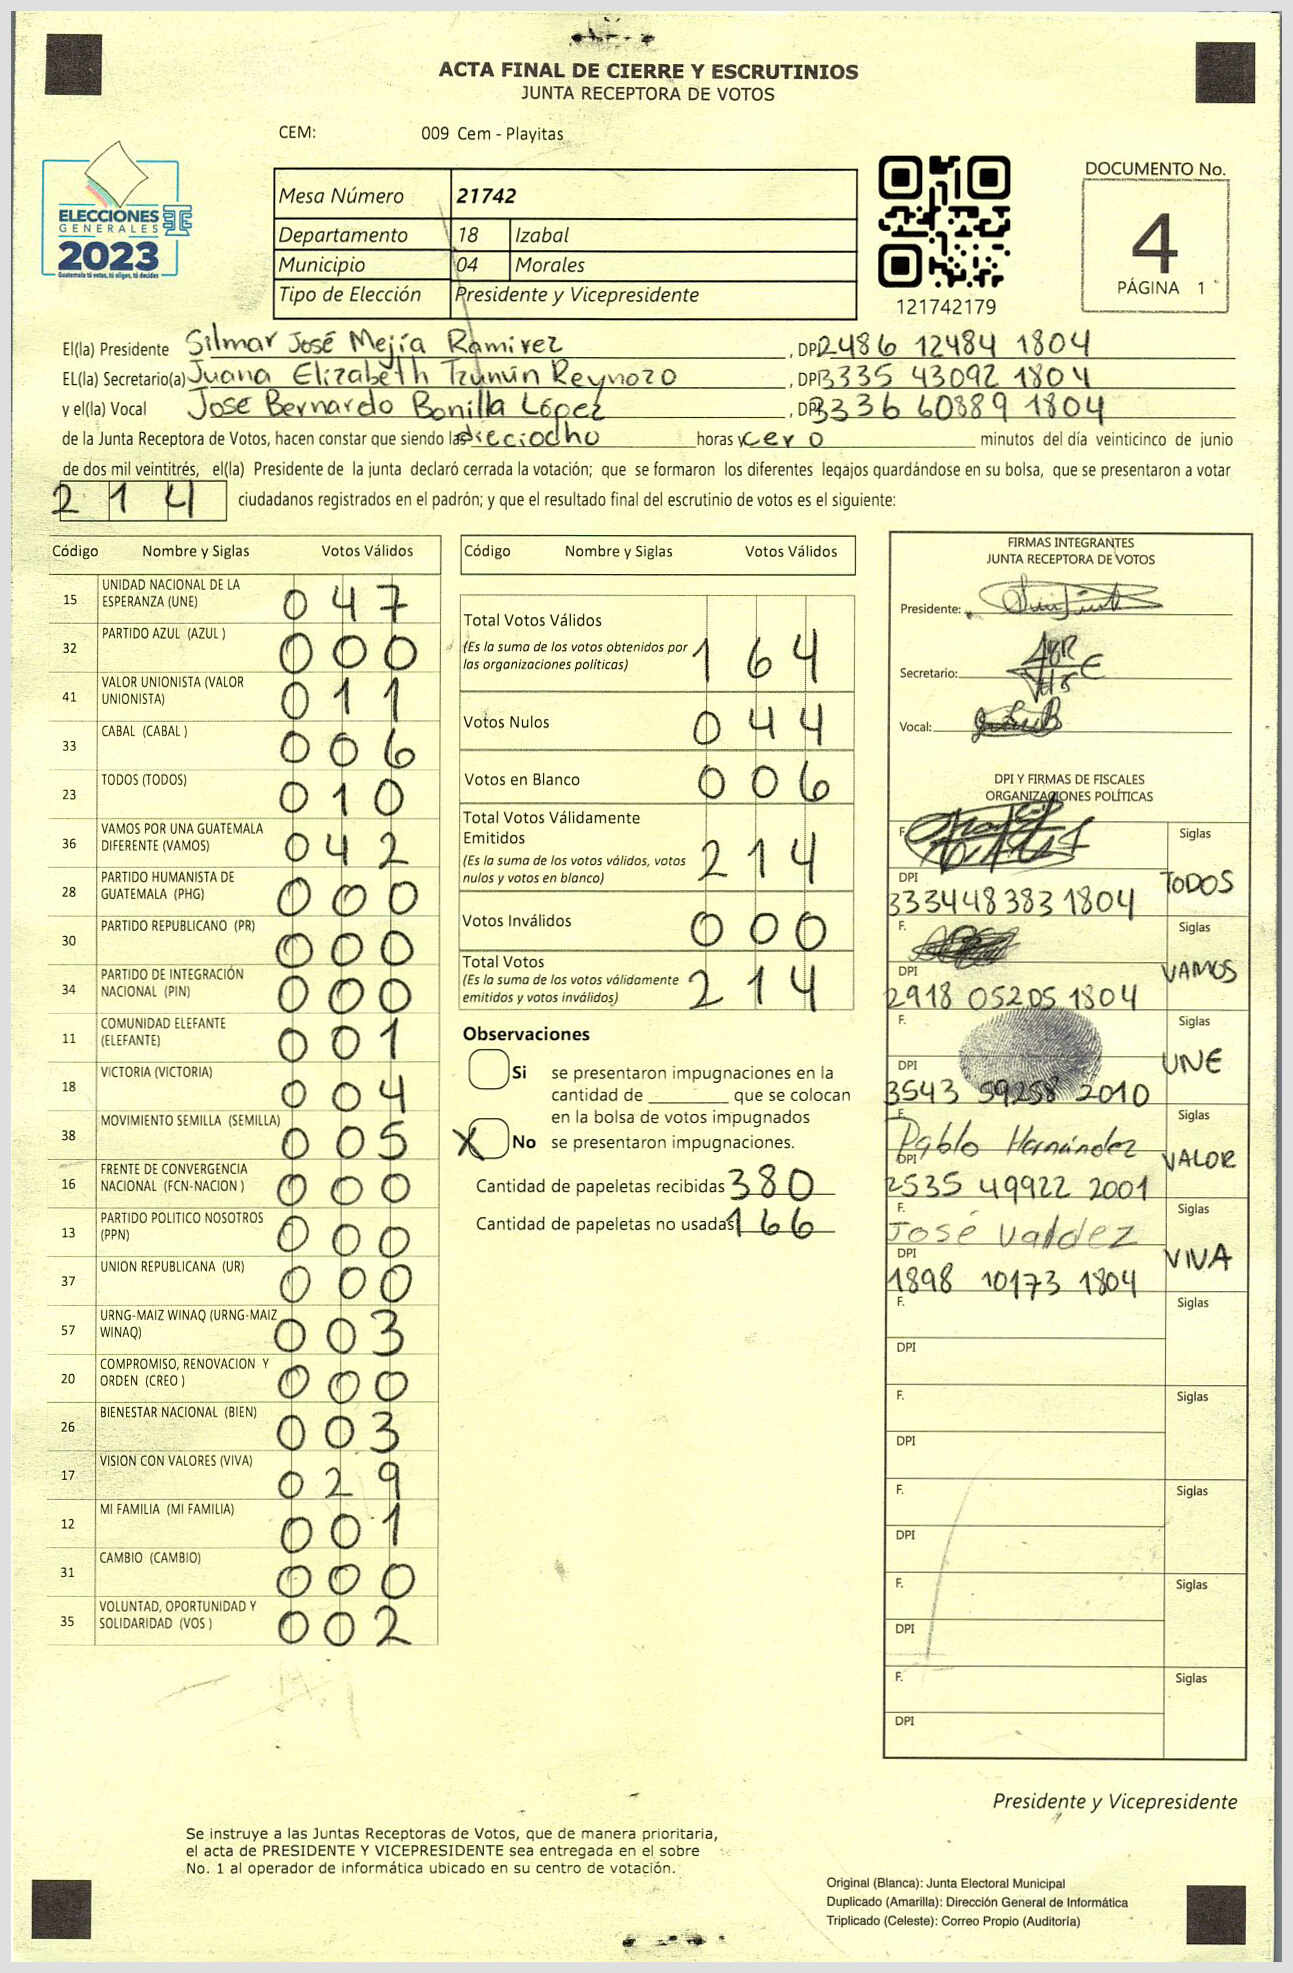 ACTA FINAL DE CIERRE Y ESCRUTINIOS
JUNTA RECEPTORA DE VOTOS
CEM: 009 Cem - Playitas
ELECCIONES
GENERALES
2023
Guatemala tú votas, tú eliges, tú decides
Mesa Número 21742
Departamento 18 Izabal
Municipio 04 Morales
Tipo de Elección Presidente y Vicepresidente
121742179
DOCUMENTO No.
4
PÁGINA 1
El(la) Presidente Silmar José Mejía Ramirez, DPI 2486 12484 1804
EL(la) Secretario(a) Juana Elizabeth Tzunún Reynozo, DPI 3335 43092 1804
y el(la) Vocal José Bernardo Bonilla López, DPI 3336 60889 1804
de la Junta Receptora de Votos, hacen constar que siendo las dieciocho horas y cero minutos del día veinticinco de junio
de dos mil veintitrés, el(la) Presidente de la junta declaró cerrada la votación; que se formaron los diferentes legajos quardándose en su bolsa, que se presentaron a votar
214 ciudadanos registrados en el padrón; y que el resultado final del escrutinio de votos es el siguiente:
Código Nombre y Siglas Votos Válidos
15 UNIDAD NACIONAL DE LA ESPERANZA (UNE) 047
32 PARTIDO AZUL (AZUL ) 000
41 VALOR UNIONISTA (VALOR UNIONISTA) 011
33 CABAL (CABAL ) 006
23 TODOS (TODOS) 010
36 VAMOS POR UNA GUATEMALA DIFERENTE (VAMOS) 042
28 PARTIDO HUMANISTA DE GUATEMALA (PHG) 000
30 PARTIDO REPUBLICANO (PR) 000
34 PARTIDO DE INTEGRACIÓN NACIONAL (PIN) 000
11 COMUNIDAD ELEFANTE (ELEFANTE) 001
18 VICTORIA (VICTORIA) 004
38 MOVIMIENTO SEMILLA (SEMILLA) 005
16 FRENTE DE CONVERGENCIA NACIONAL (FCN-NACION ) 000
13 PARTIDO POLITICO NOSOTROS (PPN) 000
37 UNION REPUBLICANA (UR) 000
57 URNG-MAIZ WINAQ (URNG-MAIZ WINAQ) 003
20 COMPROMISO, RENOVACION Y ORDEN (CREO ) 000
26 BIENESTAR NACIONAL (BIEN) 003
17 VISION CON VALORES (VIVA) 029
12 MI FAMILIA (MI FAMILIA) 001
31 CAMBIO (CAMBIO) 000
35 VOLUNTAD, OPORTUNIDAD Y SOLIDARIDAD (VOS ) 002
Código Nombre y Siglas Votos Válidos
Total Votos Válidos 164
(Es la suma de los votos obtenidos por
las organizaciones políticas)
Votos Nulos 044
Votos en Blanco 006
Total Votos Válidamente
Emitidos 214
(Es la suma de los votos válidos, votos
nulos y votos en blanco)
Votos Inválidos 000
Total Votos 214
(Es la suma de los votos válidamente
emitidos y votos inválidos)
Observaciones
Si se presentaron impugnaciones en la
cantidad de ________ que se colocan
en la bolsa de votos impugnados
X No se presentaron impugnaciones.
Cantidad de papeletas recibidas 380
Cantidad de papeletas no usadas 166
FIRMAS INTEGRANTES
JUNTA RECEPTORA DE VOTOS
Presidente:
Secretario:
Vocal:
DPI Y FIRMAS DE FISCALES
ORGANIZACIONES POLÍTICAS
F. Siglas
DPI TODOS
333448383 1804
F. Siglas
DPI VAMOS
2918 05205 1804
F. Siglas
DPI UNE
3543 59258 2010
F. Pablo Hernández Siglas
DPI VALOR
2535 49922 2001
F. José Valdez Siglas
DPI VIVA
1898 10173 1804
F. Siglas
DPI
F. Siglas
DPI
F. Siglas
DPI
F. Siglas
DPI
F. Siglas
DPI
Presidente y Vicepresidente
Se instruye a las Juntas Receptoras de Votos, que de manera prioritaria,
el acta de PRESIDENTE Y VICEPRESIDENTE sea entregada en el sobre
No. 1 al operador de informática ubicado en su centro de votación.
Original (Blanca): Junta Electoral Municipal
Duplicado (Amarilla): Dirección General de Informática
Triplicado (Celeste): Correo Propio (Auditoría)